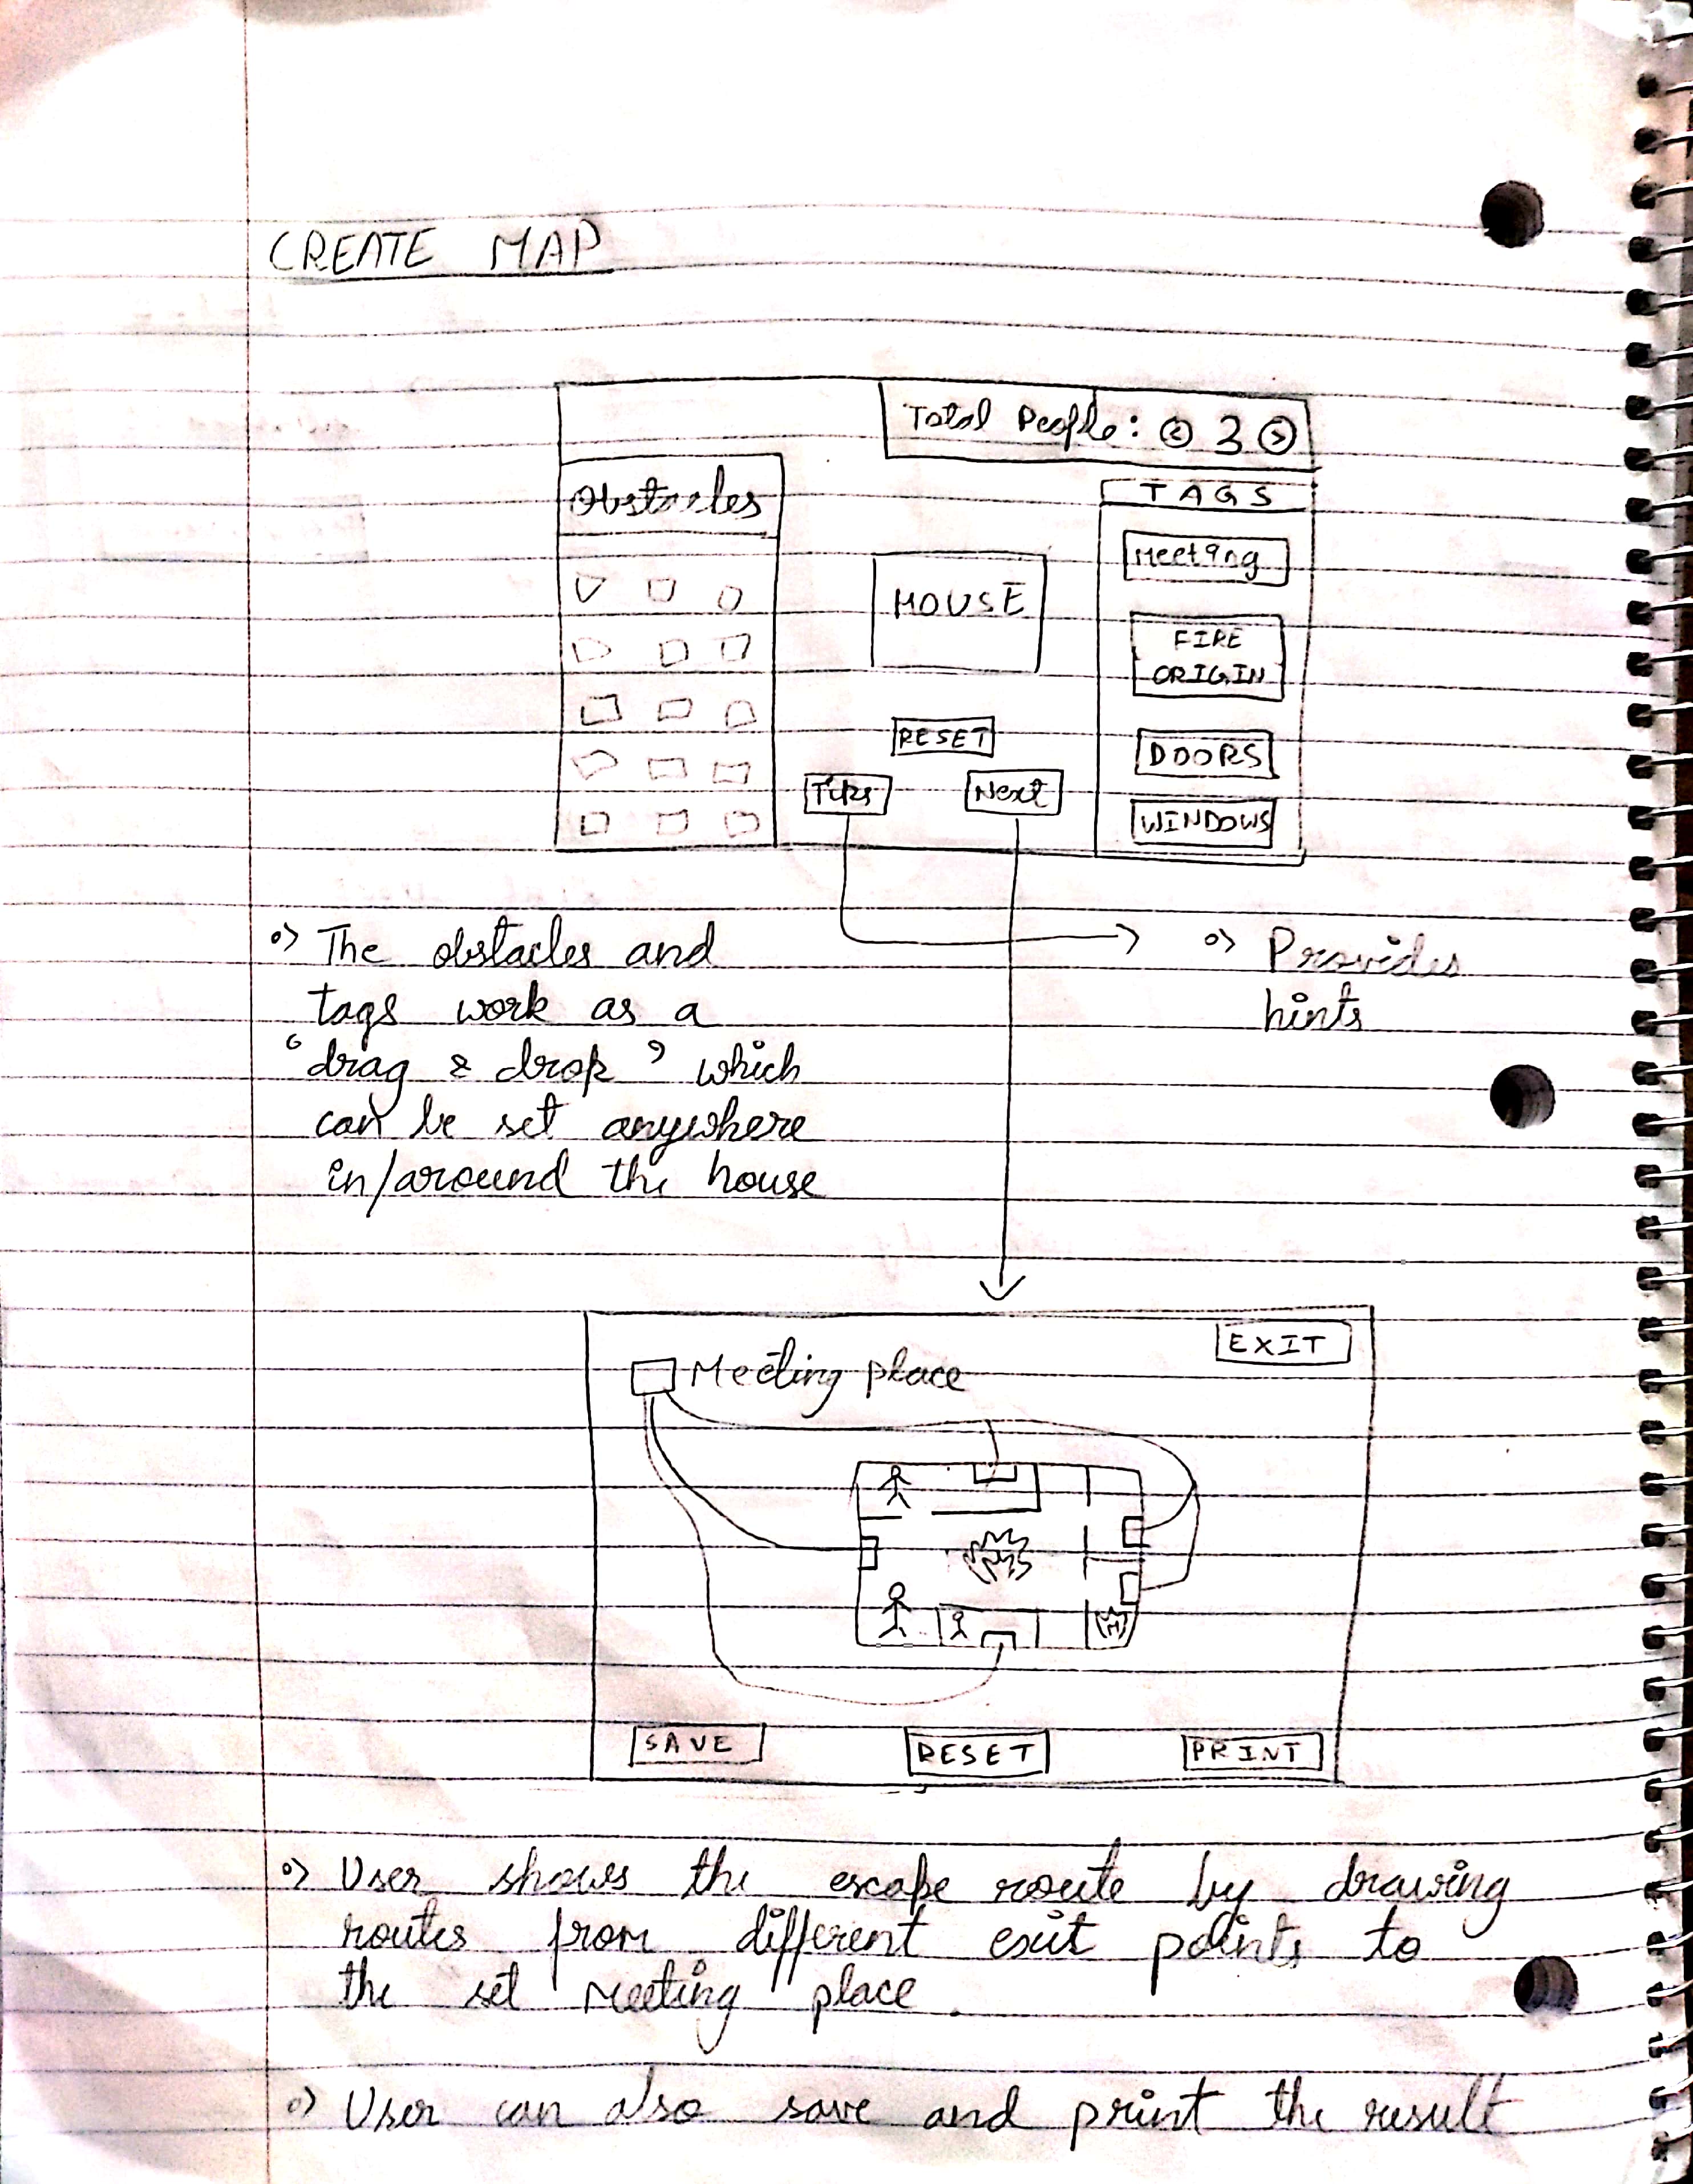 CREATE MAP
Total People: < 3 >
Obstacles
TAGS
Meeting
HOUSE
FIRE
ORIGIN
RESET
DOORS
Tips
Next
WINDOWS
o> The obstacles and
tags work as a
"drag & drop" which
can be set anywhere
in/around the house
o> Provides
hints
EXIT
Meeting place
SAVE
RESET
PRINT
o> User shows the escape route by drawing
routes from different exit points to
the set meeting place.
o> User can also save and print the result